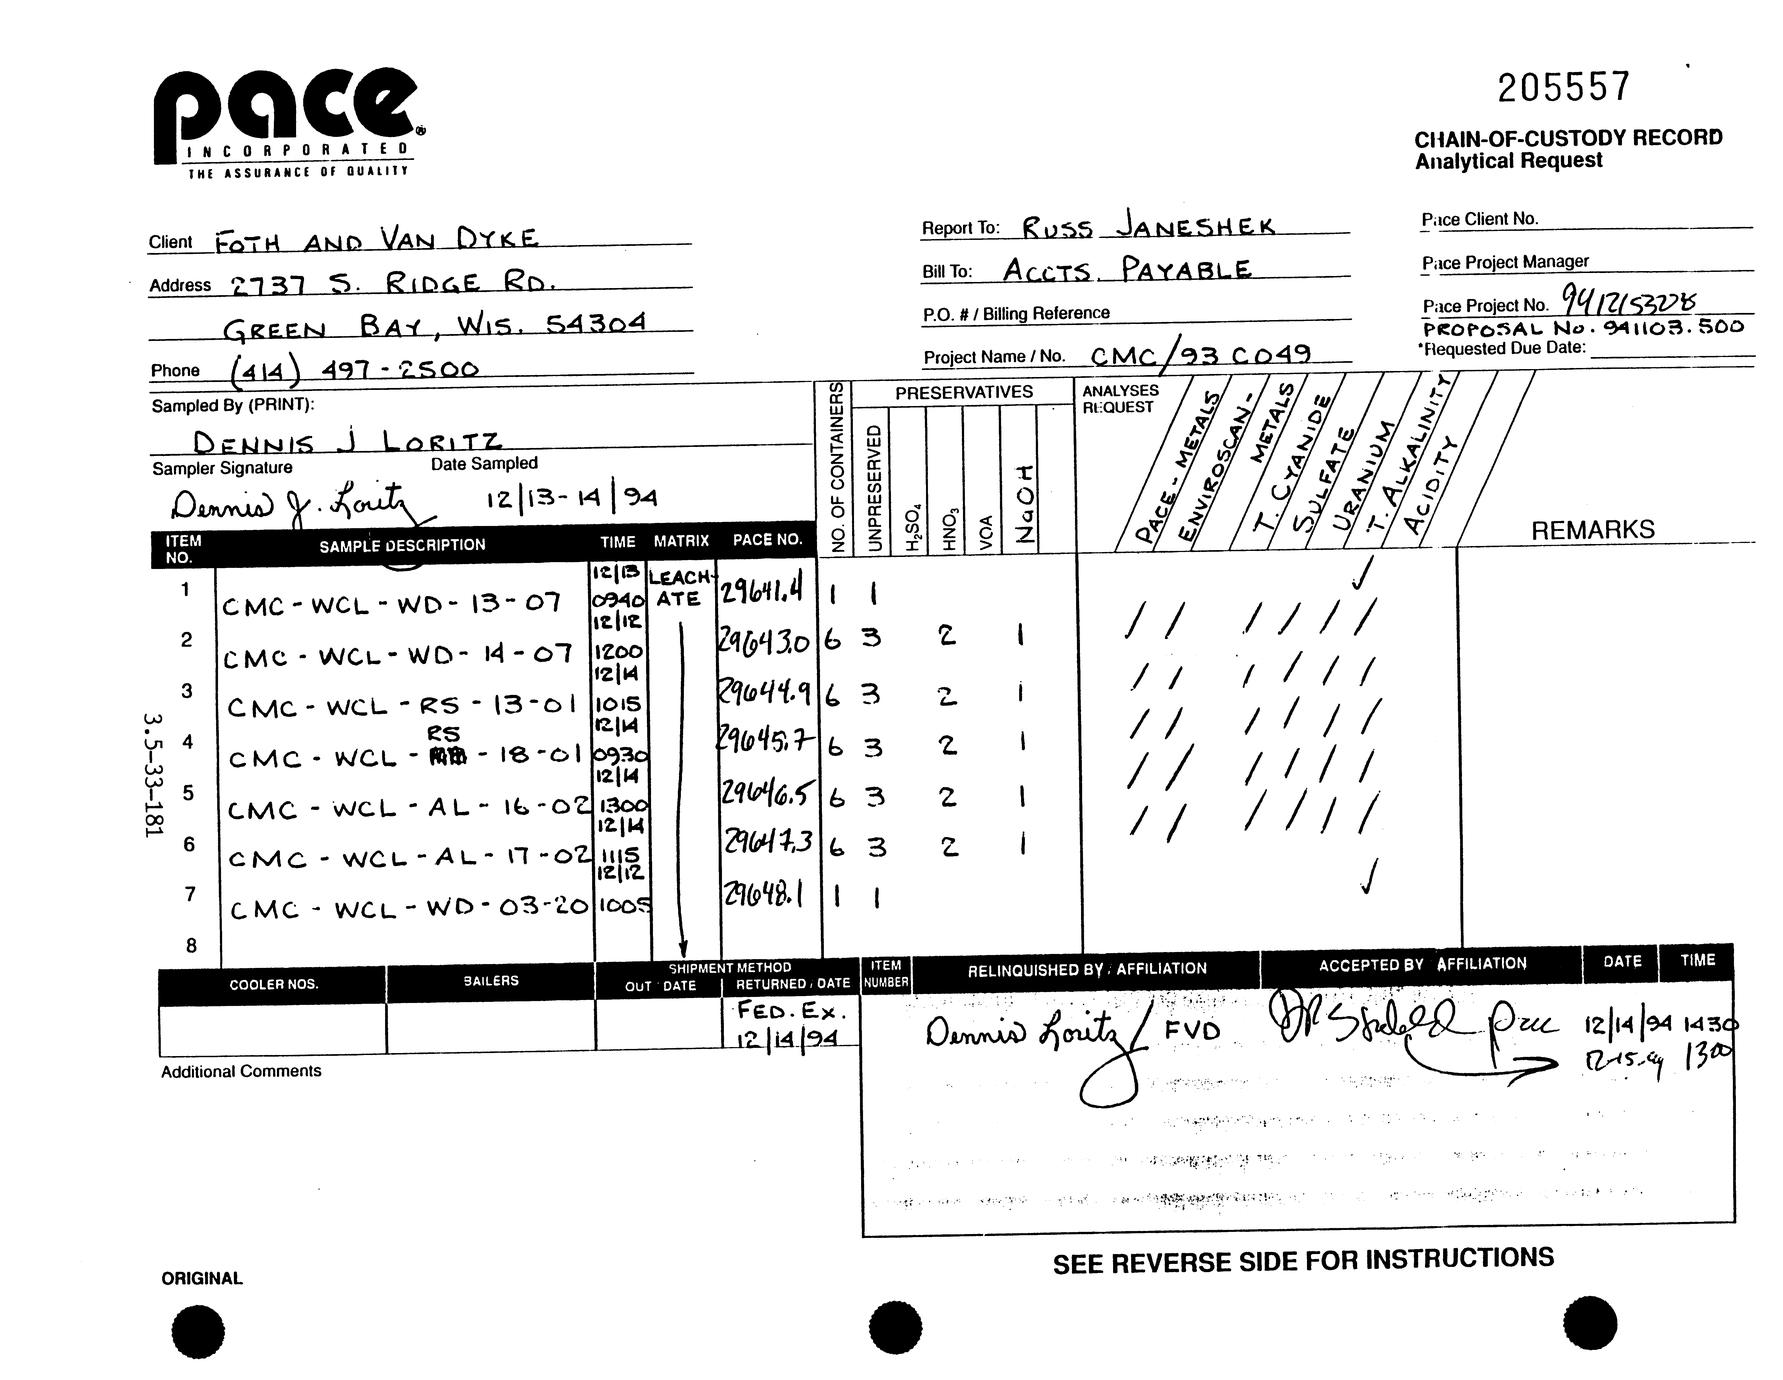 pace®
INCORPORATED
THE ASSURANCE OF QUALITY
205557
CHAIN-OF-CUSTODY RECORD
Analytical Request
Client FOTH AND VAN DYKE
Address 2737 S. RIDGE RD.
GREEN BAY, WIS. 54304
Phone (414) 497-2500
Report To: RUSS JANESHEK
Bill To: ACCTS. PAYABLE
P.O. # / Billing Reference
Project Name / No. CMC/93 C049
Pace Client No.
Pace Project Manager
Pace Project No. 941215322B
PROPOSAL NO. 941103.500
*Requested Due Date:
Sampled By (PRINT):
DENNIS J LORITZ
Sampler Signature Date Sampled
Dennis J. Loritz 12/13-14/94
NO. OF CONTAINERS
PRESERVATIVES
UNPRESERVED
H₂SO₄
HNO₃
VOA
NaOH
ANALYSES
REQUEST
PACE-METALS
ENVIROSCAN-
METALS
T. CYANIDE
SULFATE
URANIUM
T. ALKALINITY
ACIDITY
REMARKS
ITEM NO. SAMPLE DESCRIPTION TIME MATRIX PACE NO.
1 CMC-WCL-WD-13-07 12/13 0940 LEACHATE 29641.4 1 1 ✓
2 CMC-WCL-WD-14-07 12/12 1200 29643.0 6 3 2 1 / / / / / /
3 CMC-WCL-RS-13-01 12/14 1015 29644.9 6 3 2 1 / / / / / /
4 CMC-WCL-RS-18-01 12/14 0930 29645.7 6 3 2 1 / / / / / /
5 CMC-WCL-AL-16-02 12/14 1300 29646.5 6 3 2 1 / / / / / /
6 CMC-WCL-AL-17-02 12/14 1115 29647.3 6 3 2 1 / / / / / /
7 CMC-WCL-WD-03-20 12/12 1005 29648.1 1 1 ✓
8
3.5-33-181
COOLER NOS. BAILERS SHIPMENT METHOD
OUT / DATE RETURNED / DATE
FED. EX.
12/14/94
ITEM NUMBER RELINQUISHED BY / AFFILIATION ACCEPTED BY / AFFILIATION DATE TIME
Dennis Loritz / FVD Pace 12/14/94 1430
12-15-94 1300
Additional Comments
SEE REVERSE SIDE FOR INSTRUCTIONS
ORIGINAL